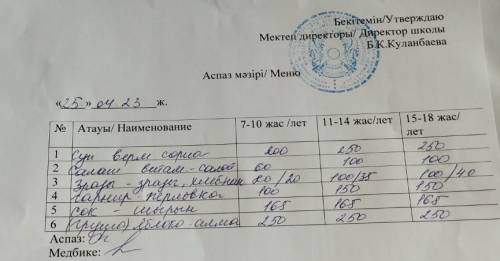 Бекітемін/Утверждаю
Мектеп директоры/ Директор школы
Б.К.Куланбаева
Аспаз мәзірі/ Меню
«25» 04 23 ж.
№ Атауы/ Наименование 7-10 жас /лет 11-14 жас/лет 15-18 жас/ лет
1 Суп верм сорпа 200 250 250
2 Салат витам - салат 60 100 100
3 зразы - зразы, хлебная 80/20 100/35 100/40
4 гарнир - перловка 100 150 150
5 сок - шырын 168 168 168
6 (груша) яблоко - алма 250 250 250
Аспаз:
Медбике: